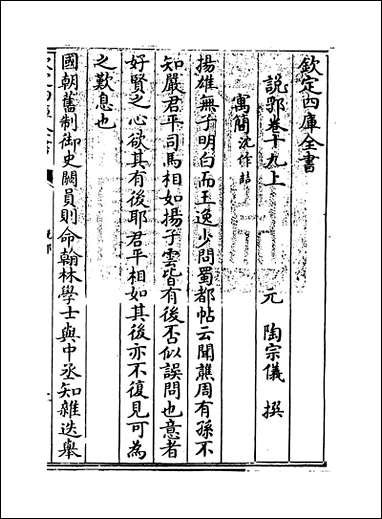 欽定四庫全書
說郛卷十九上
元 陶宗儀 撰
寓簡 沈作喆
揚雄無子明白而王逸少問蜀都帖云聞譙周有孫不
知嚴君平司馬相如揚子雲皆有後否似誤問也意者
好賢之心欲其有後耶君平相如其後亦不復見可為
之歎息也
國朝舊制御史闕員則命翰林學士與中丞知雜迭舉